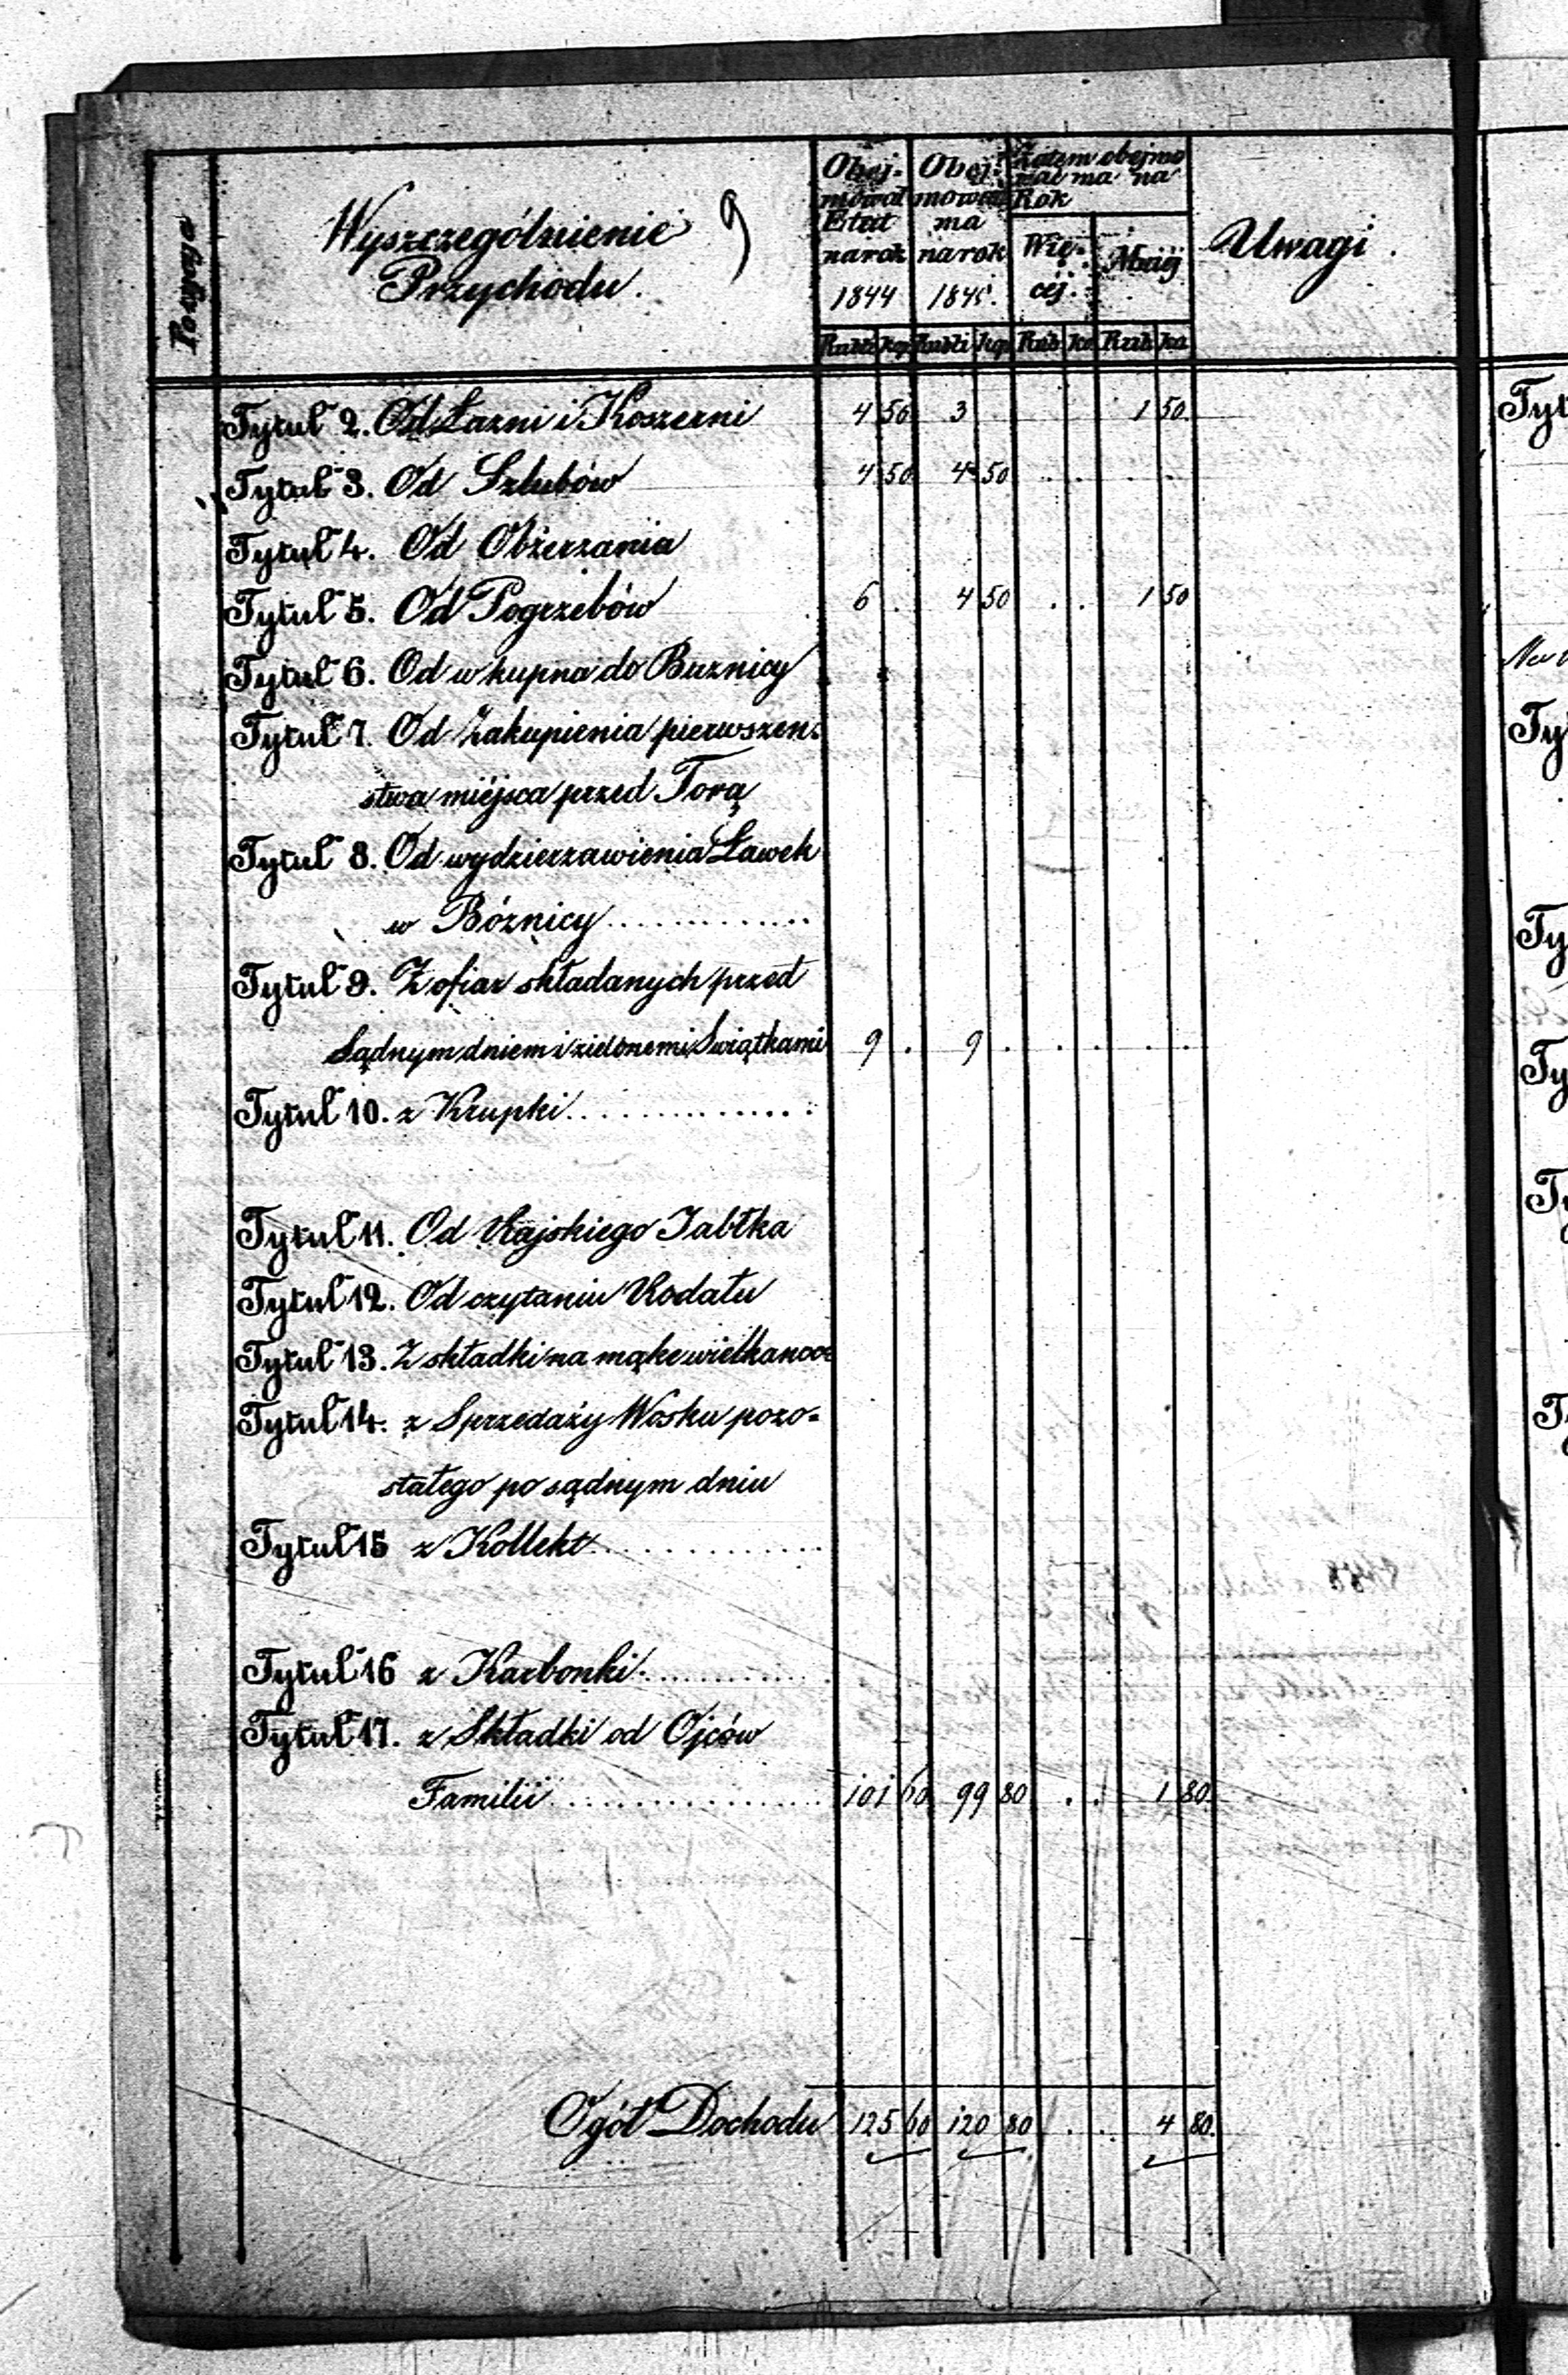 Pozycya
Wyszczególnienie
Przychodu.
9
Obej-
mował
Etat
na rok
1844
Obej-
mować
ma
na rok
1845.
Zatem obejmo
wać ma na
Rok
Wię-
cej.
Mniéj
Uwagi.
Rubli kop Rubli kop Rub ko Rub ko
Tytuł 2. Od Łazni i Koszerni 4 50 3 1 50.
Tytuł 3. Od Szlubów 4 50 4 50
Tytuł 4. Od Obżerzania
Tytuł 5. Od Pogrzebów 6 . 4 50 . . 1 50
Tytuł 6. Od wkupna do Buznicy
Tytuł 7. Od Zakupienia pierwszen-
stwa miéjsca przed Torą
Tytuł 8. Od wydzierzawienia Ławek
w Bóznicy.............
Tytuł 9. Z ofiar składanych przed
Sądnym dniem i zielonemi Swiątkami 9 . 9 . . . . .
Tytuł 10. z Krupki..............
Tytuł 11. Od Rajskiego Jabłka
Tytuł 12. Od czytaniu Rodału
Tytuł 13. Z składki na mąke wielkanoc
Tytuł 14. z Sprzedaży Wosku pozo-
stałego po sądnym dniu
Tytuł 15 z Kollekt..............
Tytuł 16 z Karbonki...........
Tytuł 17. z Składki od Ojców
Familii................ 101 60 99 80 . . 1 80.
Ogół Dochodu 125 60 120 80 . . 4 80.